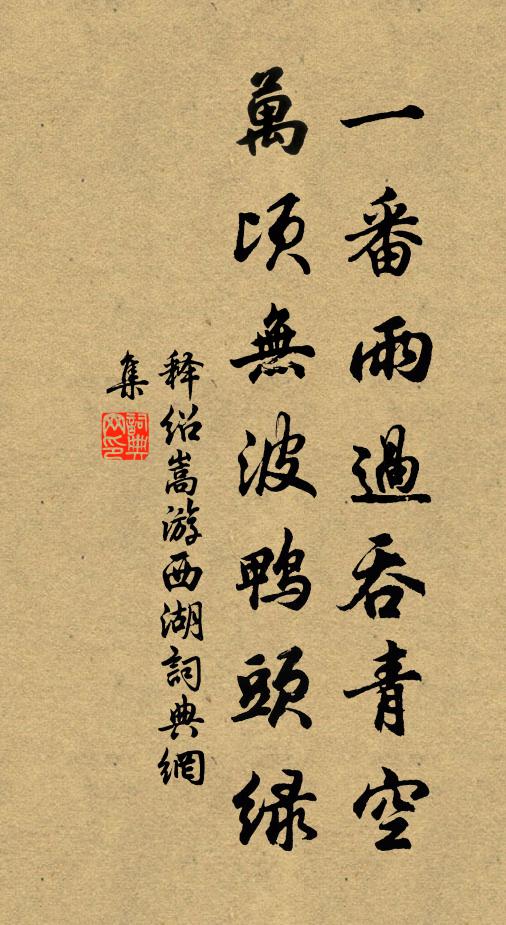 一番雨過吞青空
萬頃無波鴨頭绿
释绍嵩游西湖詞典網
集
詞典網印